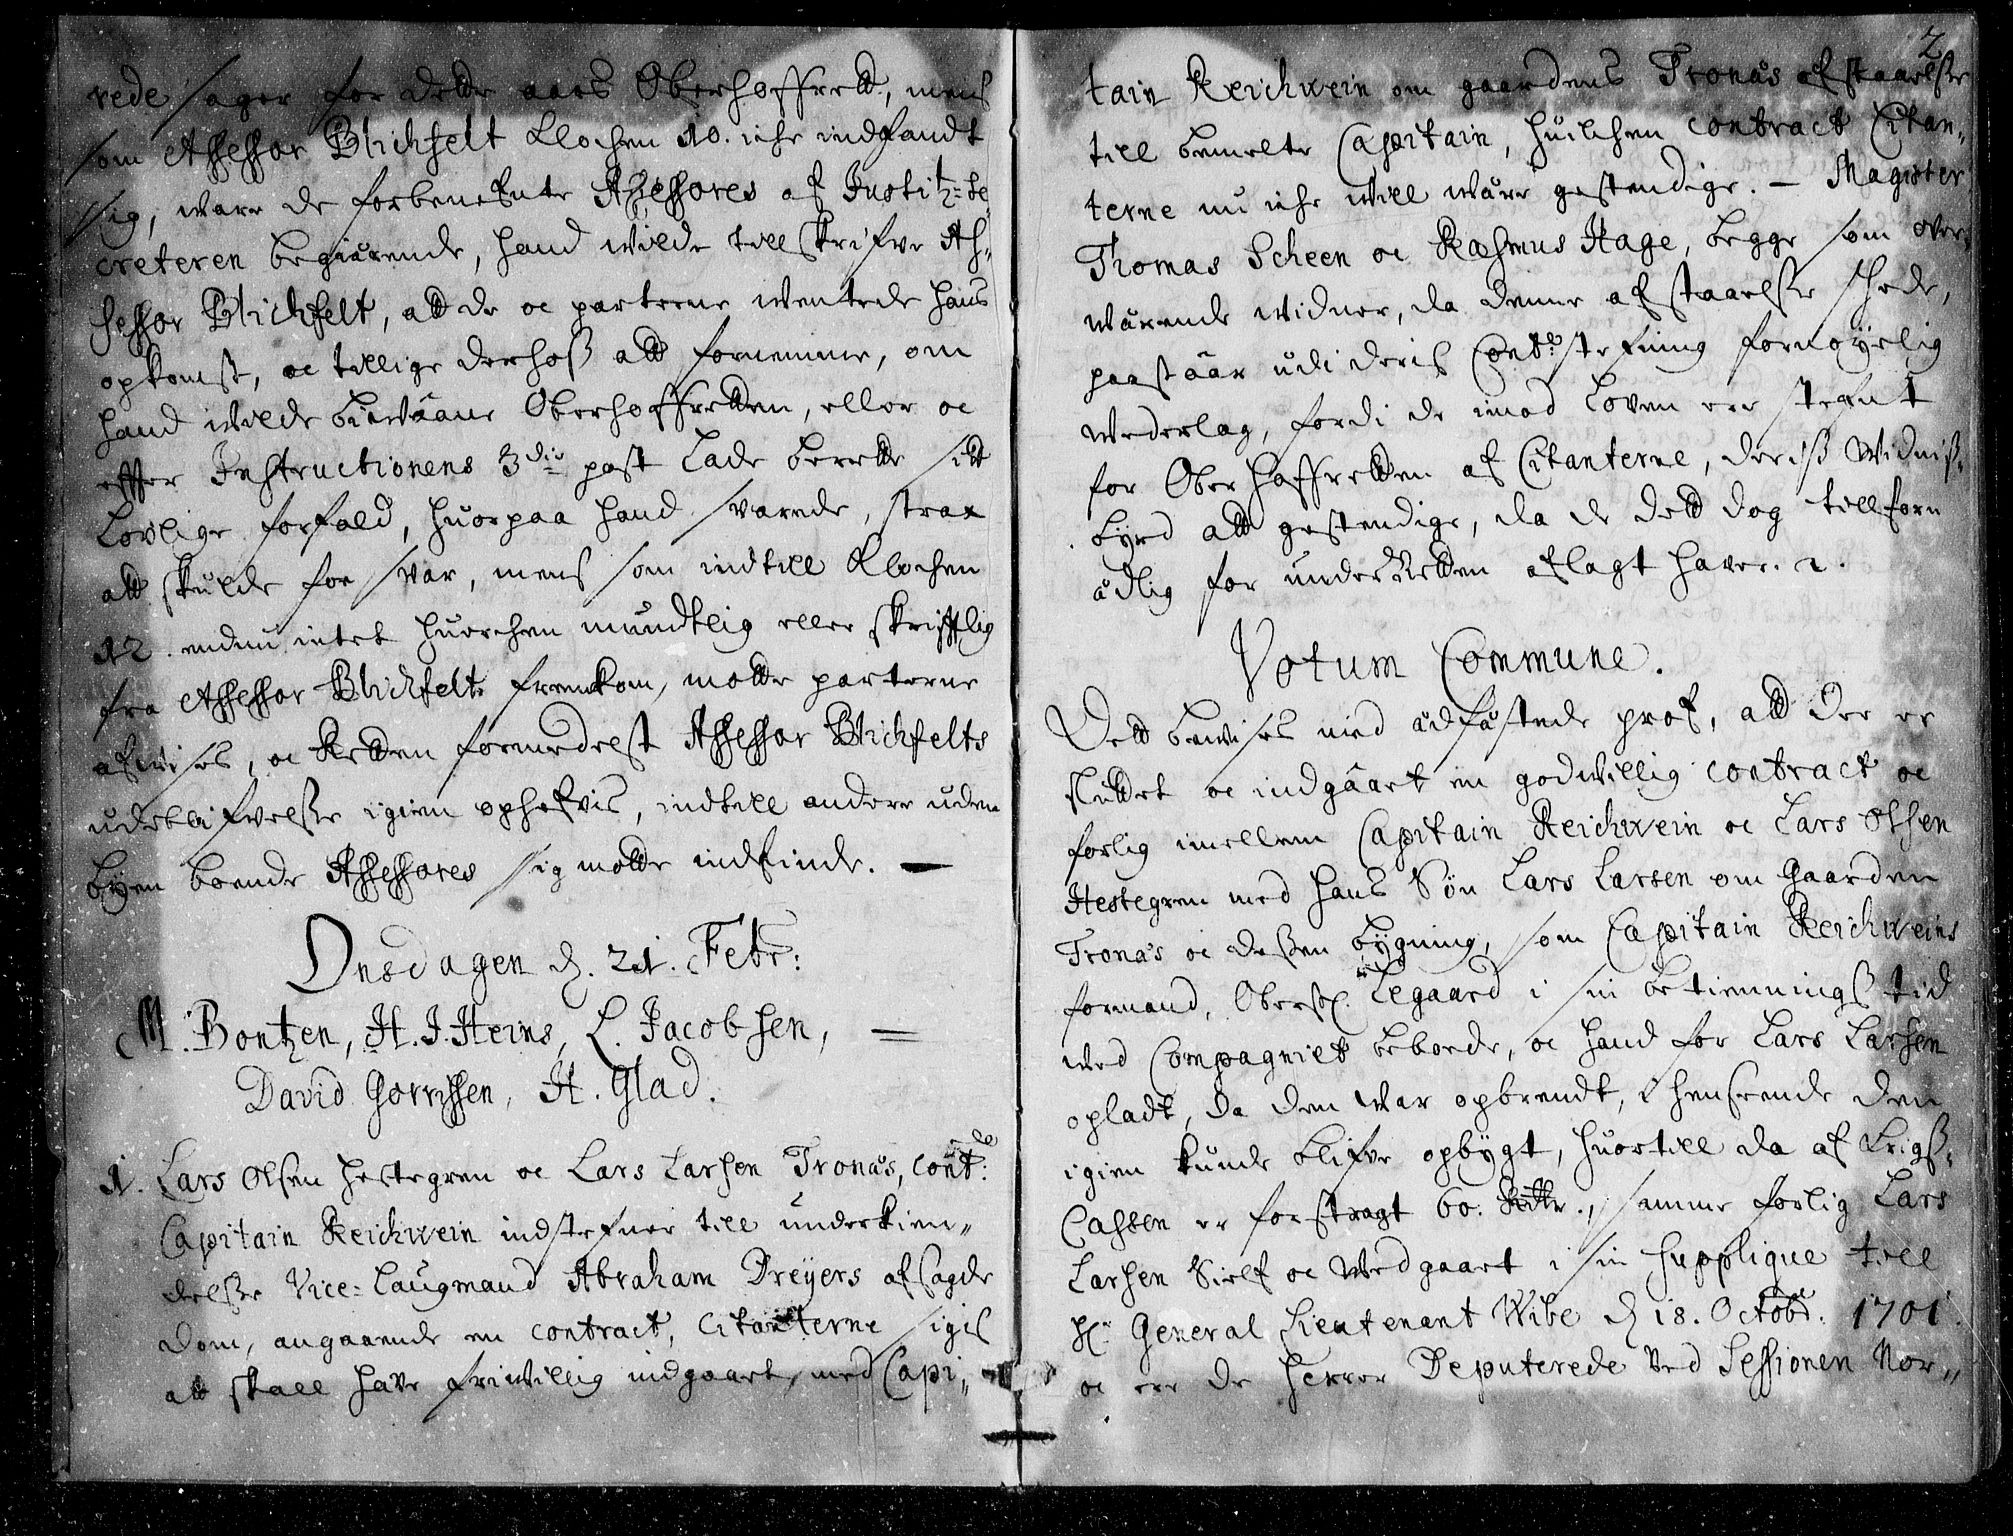 rede sager for dette aars Oberhoffrett, mens
som Assessor Blichfelt Klochen 10. iche indfandt
sig, ware de forbenefnte Assessores af Justitz-Se-
creteren begiärende, hand wilde tillskrifve As-
sessor Blichfelt, att de oc parterne wentede hans
opkomst, oc tillige derhoß att fornemme, om
hand wilde biwåne Oberhoffretten, eller oc
effter Instructionens 3die post lade berette sitt
lovlige forfald, huorpaa hand svarede, strax
att skulde faa svar, mens som indtill Klochen
12. endnu intet huerchen mundtlig eller skrifftlig
fra Assessor Blichfelt fremkom, motte parterne
afwises, oc Retten formedelst Assessor Blichfelts
udeblifvelse igien ophefvis, indtill andere uden
byen boende Assessores sig motte indfinde. —
Onsdagen d. 21. Febr:
M. Bontzen, H. J. Heins, L. Jacobsen, =
David Gorrissen, H. Glad.
1. Lars Olsen Hestegren oc Lars Larsen Tronäs, contde:
Capitain Reichwein indstefner till underkien„
delse Vice-Laugmand Abraham Dreyers afsagde
dom, angaaende en contract, Citanterne sigis
att skall have friwillig indgaaet, med Capi„
2
tain Reichwein om gaardens Tronäs afstaaelse
till bemelte Capitain, huilchen contract Citan„
terne nu iche will wäre gestendige. — Magister
Thomas Scheen oc Rasmus Hage, begge som over„
wärende widner, da denne afstaaelse skede,
paastaar udi deris Contrastefning fornöyelig
wederlag, fordi de imod loven er stefnt
for Oberhoffretten af Citanterne, deriß Widniß-
byrd att gestendige, da de dett dog tillforn
ädlig for underRetten aflagt haver.
Votum Commune.
Dett bewises med ädfästede prof, att der er
sluttet oc indgäaet en godwillig contract oc
forlig imellem Capitain Reichwein oc Lars Olsen
Hestegren med hans Sön Lars Larsen om Gaarden
Tronäs oc dessen bygning, som Capitain Reichweins
formand, Oberstl. Legaard i sin betienningß tid
wed Compagniet beboede, oc hand for Lars Larsen
opladt, da den war opbrendt, henseende den
igien kunde blifve opbygt, huortill da af Krigß-
Cassen er forstragt 60. Rdlr., samme forlig Lars
Larsen Sielf oc Wedgaaet i sin Supplique till
Hr. General Lieutenant Wibe d 18. Octobr. 1701.
oc er de Herrer Deputerede Ved Sessionen Nor„